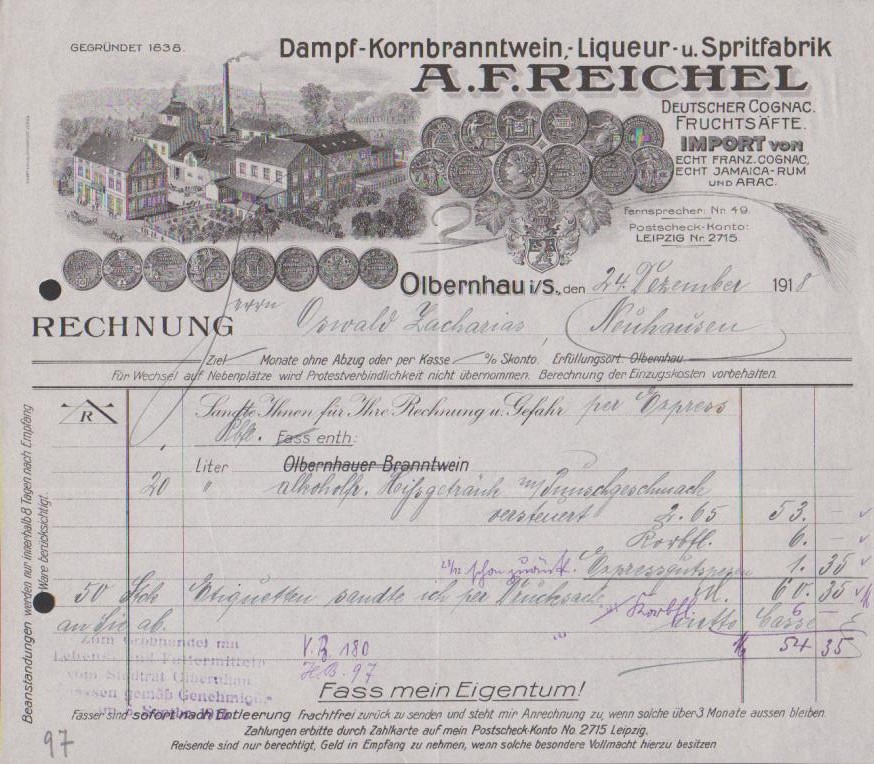 GEGRÜNDET 1838.
Dampf-Kornbranntwein,-Liqueur- u. Spritfabrik
A.F.REICHEL
DEUTSCHER COGNAC.
FRUCHTSÄFTE.
IMPORT VON
ECHT FRANZ. COGNAC,
ECHT JAMAICA-RUM
UND ARAC.
Fernsprecher: Nr. 49.
Postscheck-Konto:
LEIPZIG Nr. 2715.
2
Olbernhau i/S., den 24. Dezember 1918
RECHNUNG Herrn Oswald Zacharias, Neuhausen
Ziel Monate ohne Abzug oder per Kasse % Skonto. Erfüllungsort: Olbernhau
Für Wechsel auf Nebenplätze wird Protestverbindlichkeit nicht übernommen. Berechnung der Einzugskosten vorbehalten.
R
Sandte Ihnen für Ihre Rechnung u. Gefahr per Express
Fass enth:
Liter Olbernhauer Branntwein
20 " alkoholfr. Heißgetränk m/Punschgeschmack
versteuert 2.65 53. –
Korbfl. 6. –
schon zurück. Expressgutspesen 1. 35
50 Stck Etiquetten sandte ich per Drucksache M. 60. 35
an Sie ab. Korbfl. 6 –
netto Cassa
54 35
Zum Großhandel mit
Lebens- und Futtermitteln
vom Stadtrat Olbernhau
V. B. 180
H.B. 97
Fass mein Eigentum!
Fässer sind sofort nach Entleerung frachtfrei zurück zu senden und steht mir Anrechnung zu, wenn solche über 3 Monate aussen bleiben.
Zahlungen erbitte durch Zahlkarte auf mein Postscheck-Konto No. 2715 Leipzig.
Reisende sind nur berechtigt, Geld in Empfang zu nehmen, wenn solche besondere Vollmacht hierzu besitzen
97
Beanstandungen werden nur innerhalb 8 Tagen nach Empfang
der Ware berücksichtigt.